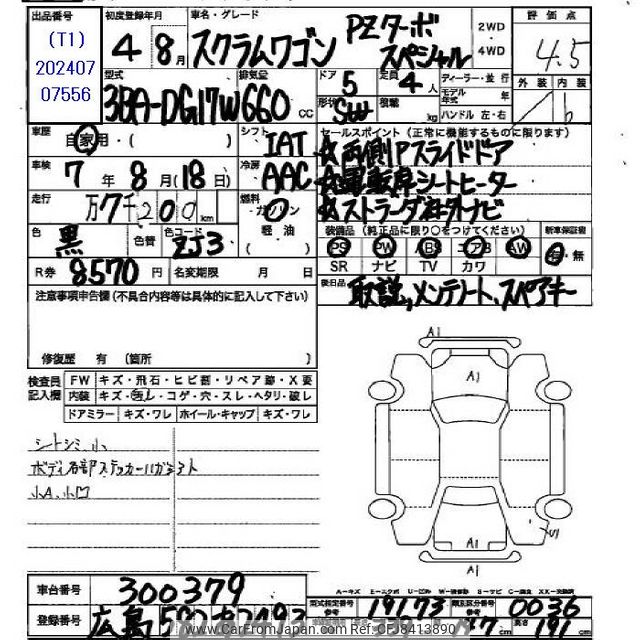 出品番号 初度登録年月 車名・グレード 評価点
(T1)
202407
07556
4年8月 スクラムワゴン PZターボ スペシャル 2WD・4WD 4.5
型式 排気量 ドア 定員 ディーラー・並行 外装 内装
3BA-DG17W 660cc 5 4人 モデル年式 年 b
形状 積載 kg ハンドル 左・右
車歴 自家用・( ) シフト IAT セールスポイント(正常に機能するものに限ります)
☆両側Pスライドドア
車検 7年8月(18日) 冷房 AAC ☆運転席シートヒーター
走行 万7千200km 燃料 ガソリン 軽油 ☆ストラーダ社外ナビ
色 黒 色替 色コード ZJ3 装備品(純正品に限り○をつけてください) 新車保証書
PS PW ABS エアB AW 有・無
SR ナビ TV カワ
R券 8570円 名変期限 月 日 後日品 取説,メンテノート、スペアキー
注意事項申告欄(不具合内容等は具体的に記入して下さい)
修復歴 有(箇所 )
検査員記入欄 FW キズ・飛石・ヒビ割・リペア跡・X要
内装 キズ・汚レ・コゲ・穴・スレ・ヘタリ・破レ
ドアミラー キズ・ワレ ホイール・キャップ キズ・ワレ
シートシミ小
小A、小凹
A1
A1
A1
A1
S
車台番号 300379
登録番号 広島
型式指定番号 19173 類別区分番号 0036
高さ 191
www.CarFromJapan.com Ref:CFJ8413890